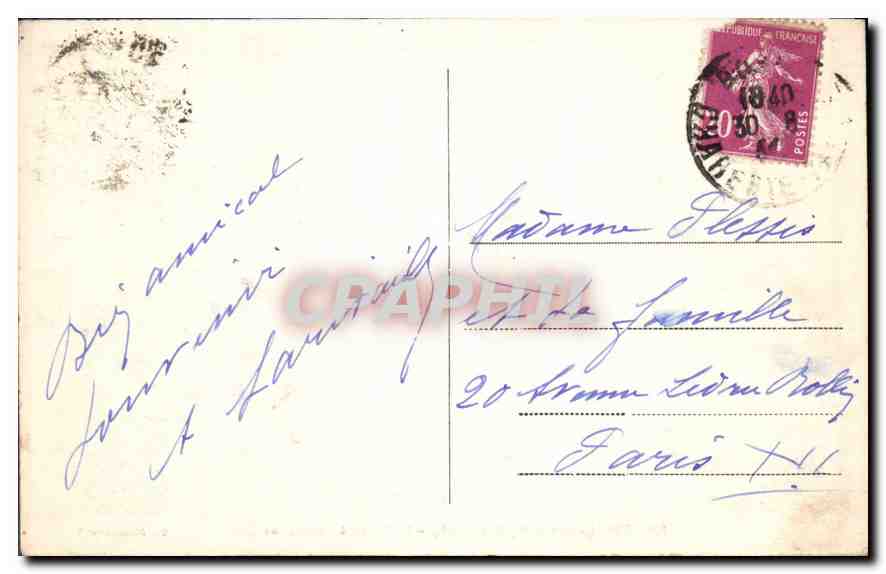 Bien amical
souvenir
A
Madame Plessis
et sa famille
20 Avenue Ledru Rollin
Paris XII
REPUBLIQUE FRANCAISE
POSTES
1840
30 8
CPAPHIL